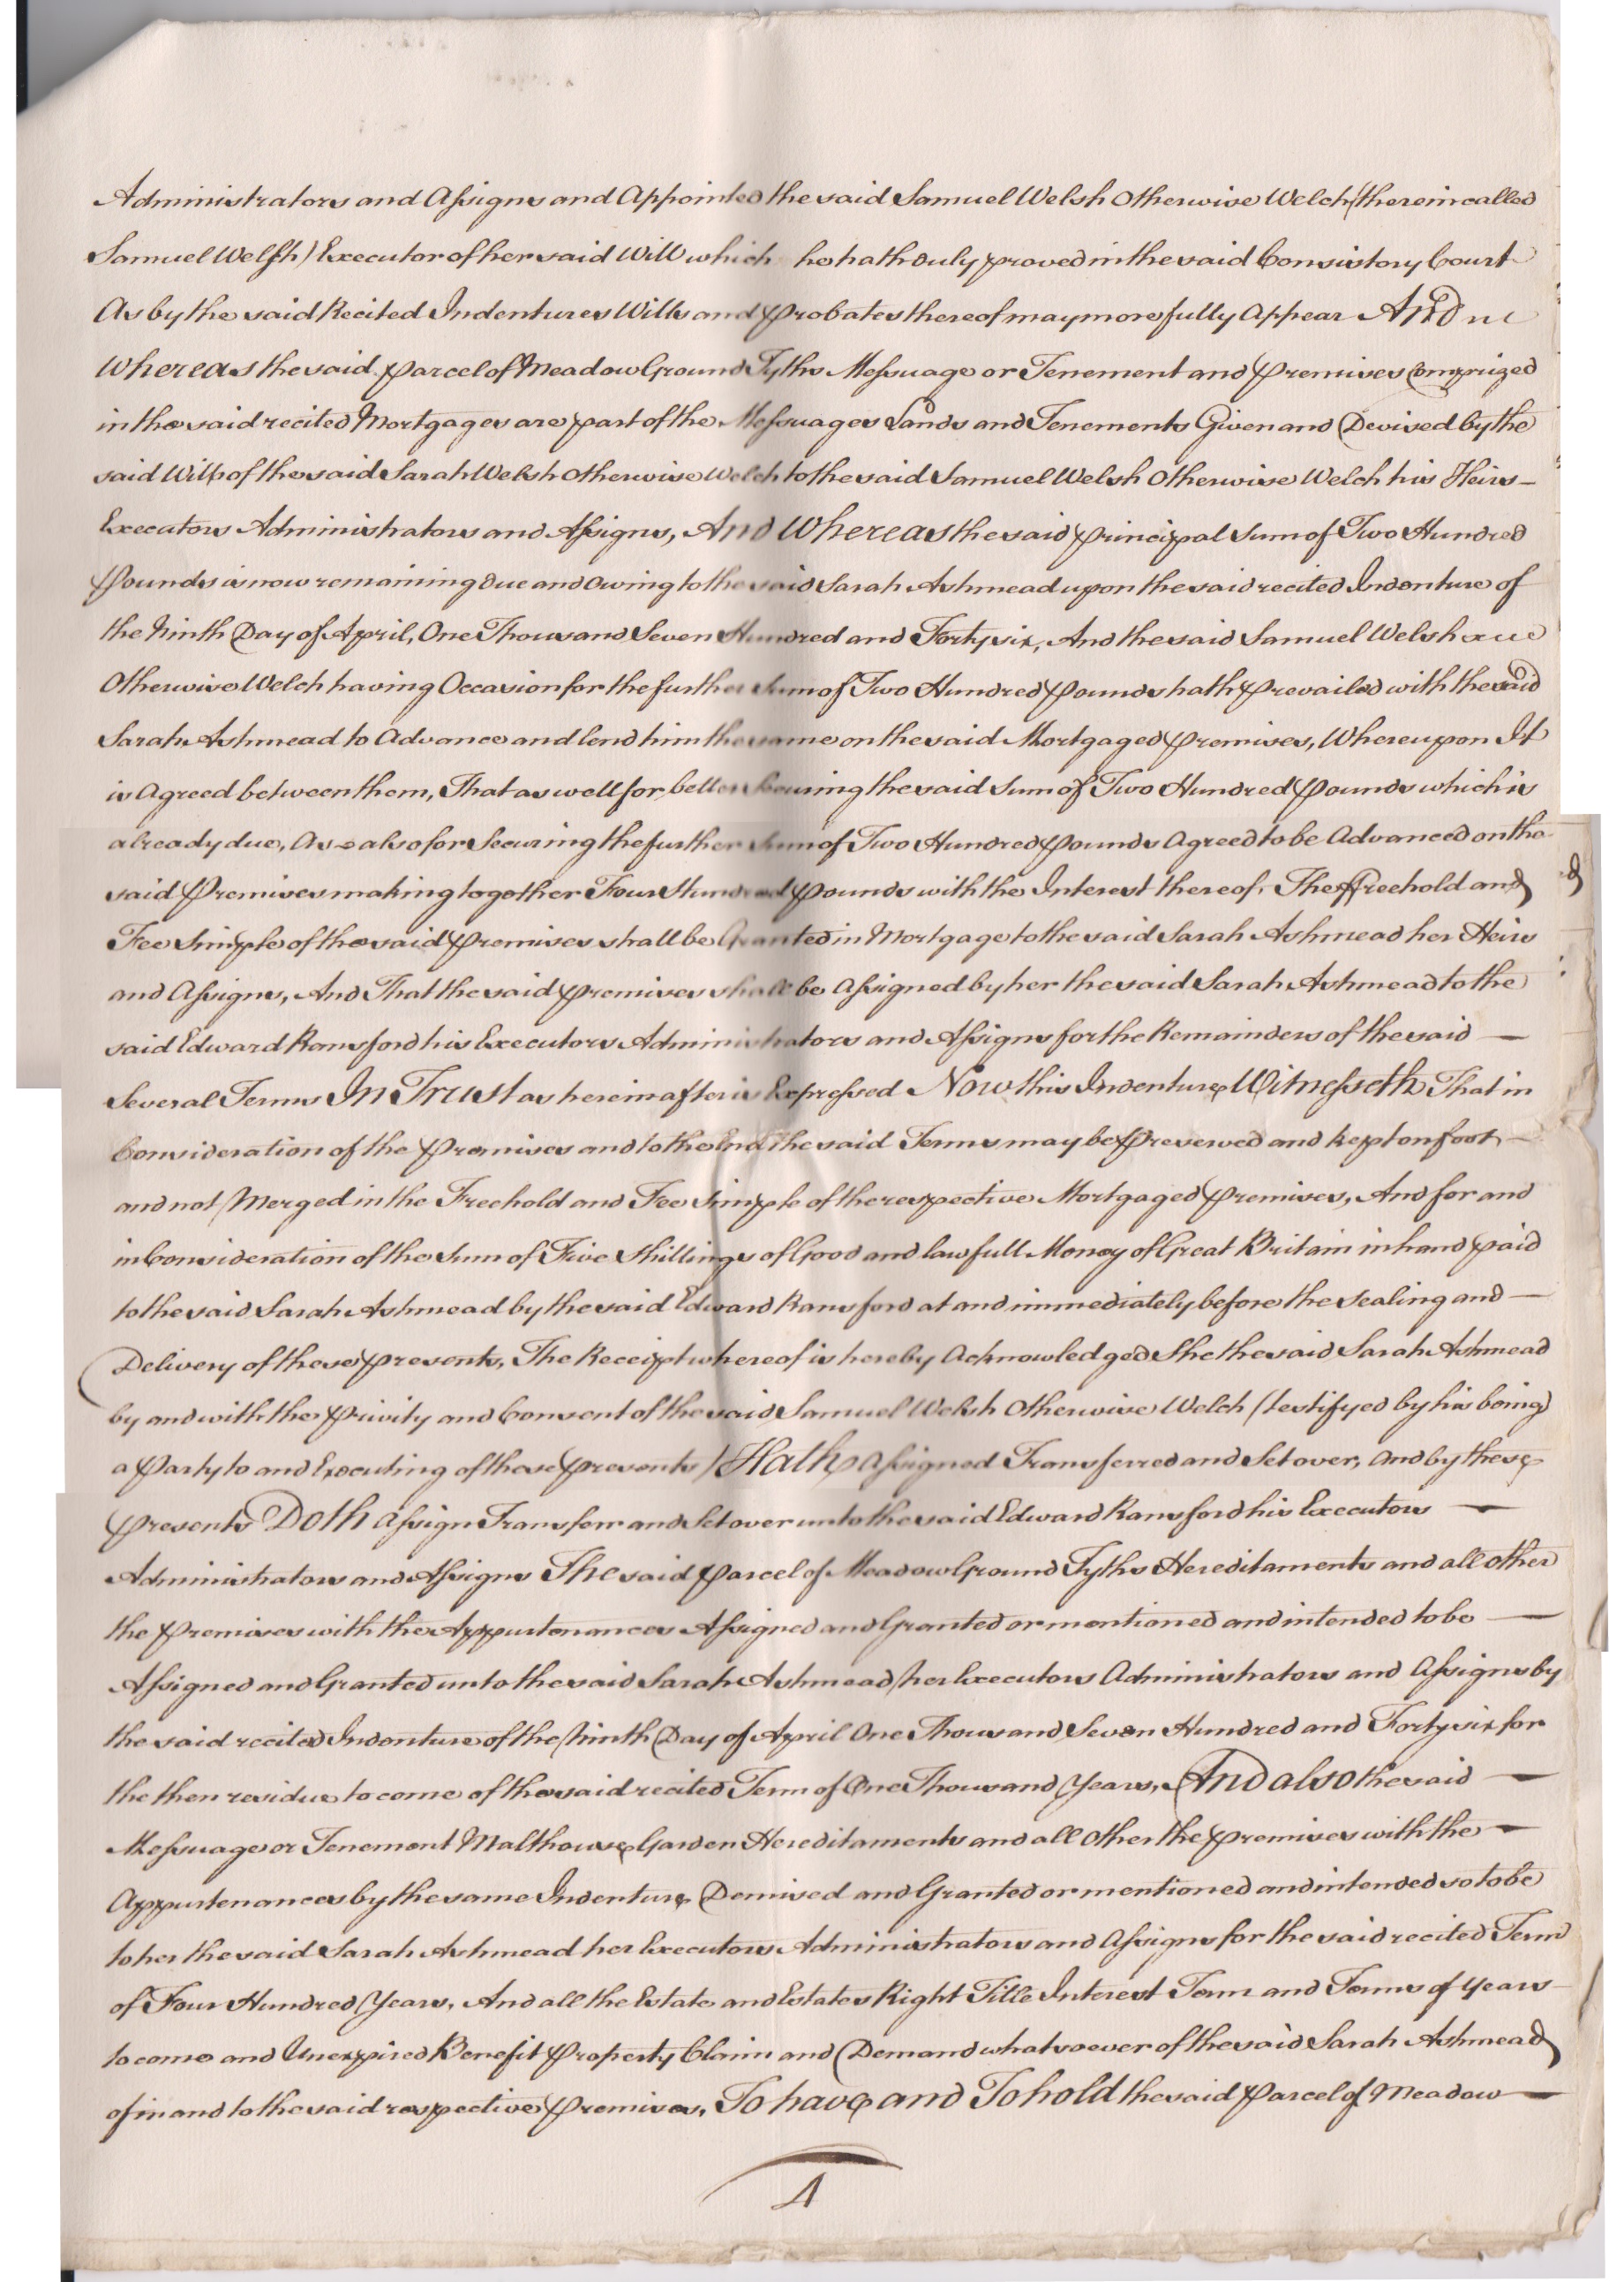 Administrators and Assigns and Appointed the said Samuel Welsh Otherwise Welch (therein called
Samuel Welsh) Executor of her said Will which he hath duly proved in the said Consistory Court
As by the said Recited Indentures Wills and Probates thereof may more fully Appear And
Whereas the said parcel of Meadow Ground Tyths Messuage or Tenement and premises Comprized
in the said recited Mortgages are part of the Messuages Lands and Tenements Given and Devised by the
said Will of the said Sarah Welsh Otherwise Welch to the said Samuel Welsh Otherwise Welch his Heirs —
Executors Administrators and Assigns, And Whereas the said principal Sum of Two Hundred
pounds is now remaining due and owing to the said Sarah Ashmead upon the said recited Indenture of
the Ninth Day of April, One Thousand Seven Hundred and Forty six, And the said Samuel Welsh
Otherwise Welch having Occasion for the further Sum of Two Hundred pounds hath prevailed with the said
Sarah Ashmead to Advance and lend him the same on the said Mortgaged premises, Whereupon It
is Agreed between them, That as well for better Securing the said Sum of Two Hundred pounds which is
already due, As also for Securing the further Sum of Two Hundred pounds Agreed to be Advanced on the
said premises making together Four Hundred pounds with the Interest thereof, The ffreehold and
Fee Simple of the said premises shall be Granted in Mortgage to the said Sarah Ashmead her Heirs
and Assigns, And That the said premises shall be Assigned by her the said Sarah Ashmead to the
said Edward Ransford his Executors Administrators and Assigns for the Remainders of the said —
Several Terms In Trust as hereinafter is Expressed Now this Indenture Witnesseth That in
Consideration of the premises and to the End the said Terms may be preserved and kept on foot —
and not Merged in the Freehold and Fee Simple of the respective Mortgaged premises, And for and
in Consideration of the Sum of Five Shillings of Good and lawfull Money of Great Britain in hand paid
to the said Sarah Ashmead by the said Edward Ransford at and immediately before the Sealing and —
Delivery of these presents, The Receipt whereof is hereby Acknowledged She the said Sarah Ashmead
by and with the privity and Consent of the said Samuel Welsh Otherwise Welch (testifyed by his being
a party to and Executing of these presents) Hath Assigned Transferred and Set over, and by these
presents Doth Assign Transferr and Set over unto the said Edward Ransford his Executors —
Administrators and Assigns The said parcel of Meadow Ground Tyths Hereditaments and all other
the premises with the Appurtenances Assigned and Granted or mentioned and intended to be —
Assigned and Granted unto the said Sarah Ashmead her Executors Administrators and Assigns by
the said recited Indenture of the Ninth Day of April One Thousand Seven Hundred and Forty six for
the then residue to come of the said recited Term of One Thousand Years, And also the said —
Messuage or Tenement Malthouse Garden Hereditaments and all Other the premises with the —
Appurtenances by the same Indenture Demised and Granted or mentioned and intended so to be
to her the said Sarah Ashmead her Executors Administrators and Assigns for the said recited Term
of Four Hundred Years, And all the Estate and Estates Right Title Interest Term and Terms of Years
to come and Unexpired Benefit property Claim and Demand whatsoever of the said Sarah Ashmead
of in and to the said respective premises, To have and To hold the said parcel of Meadow —
4